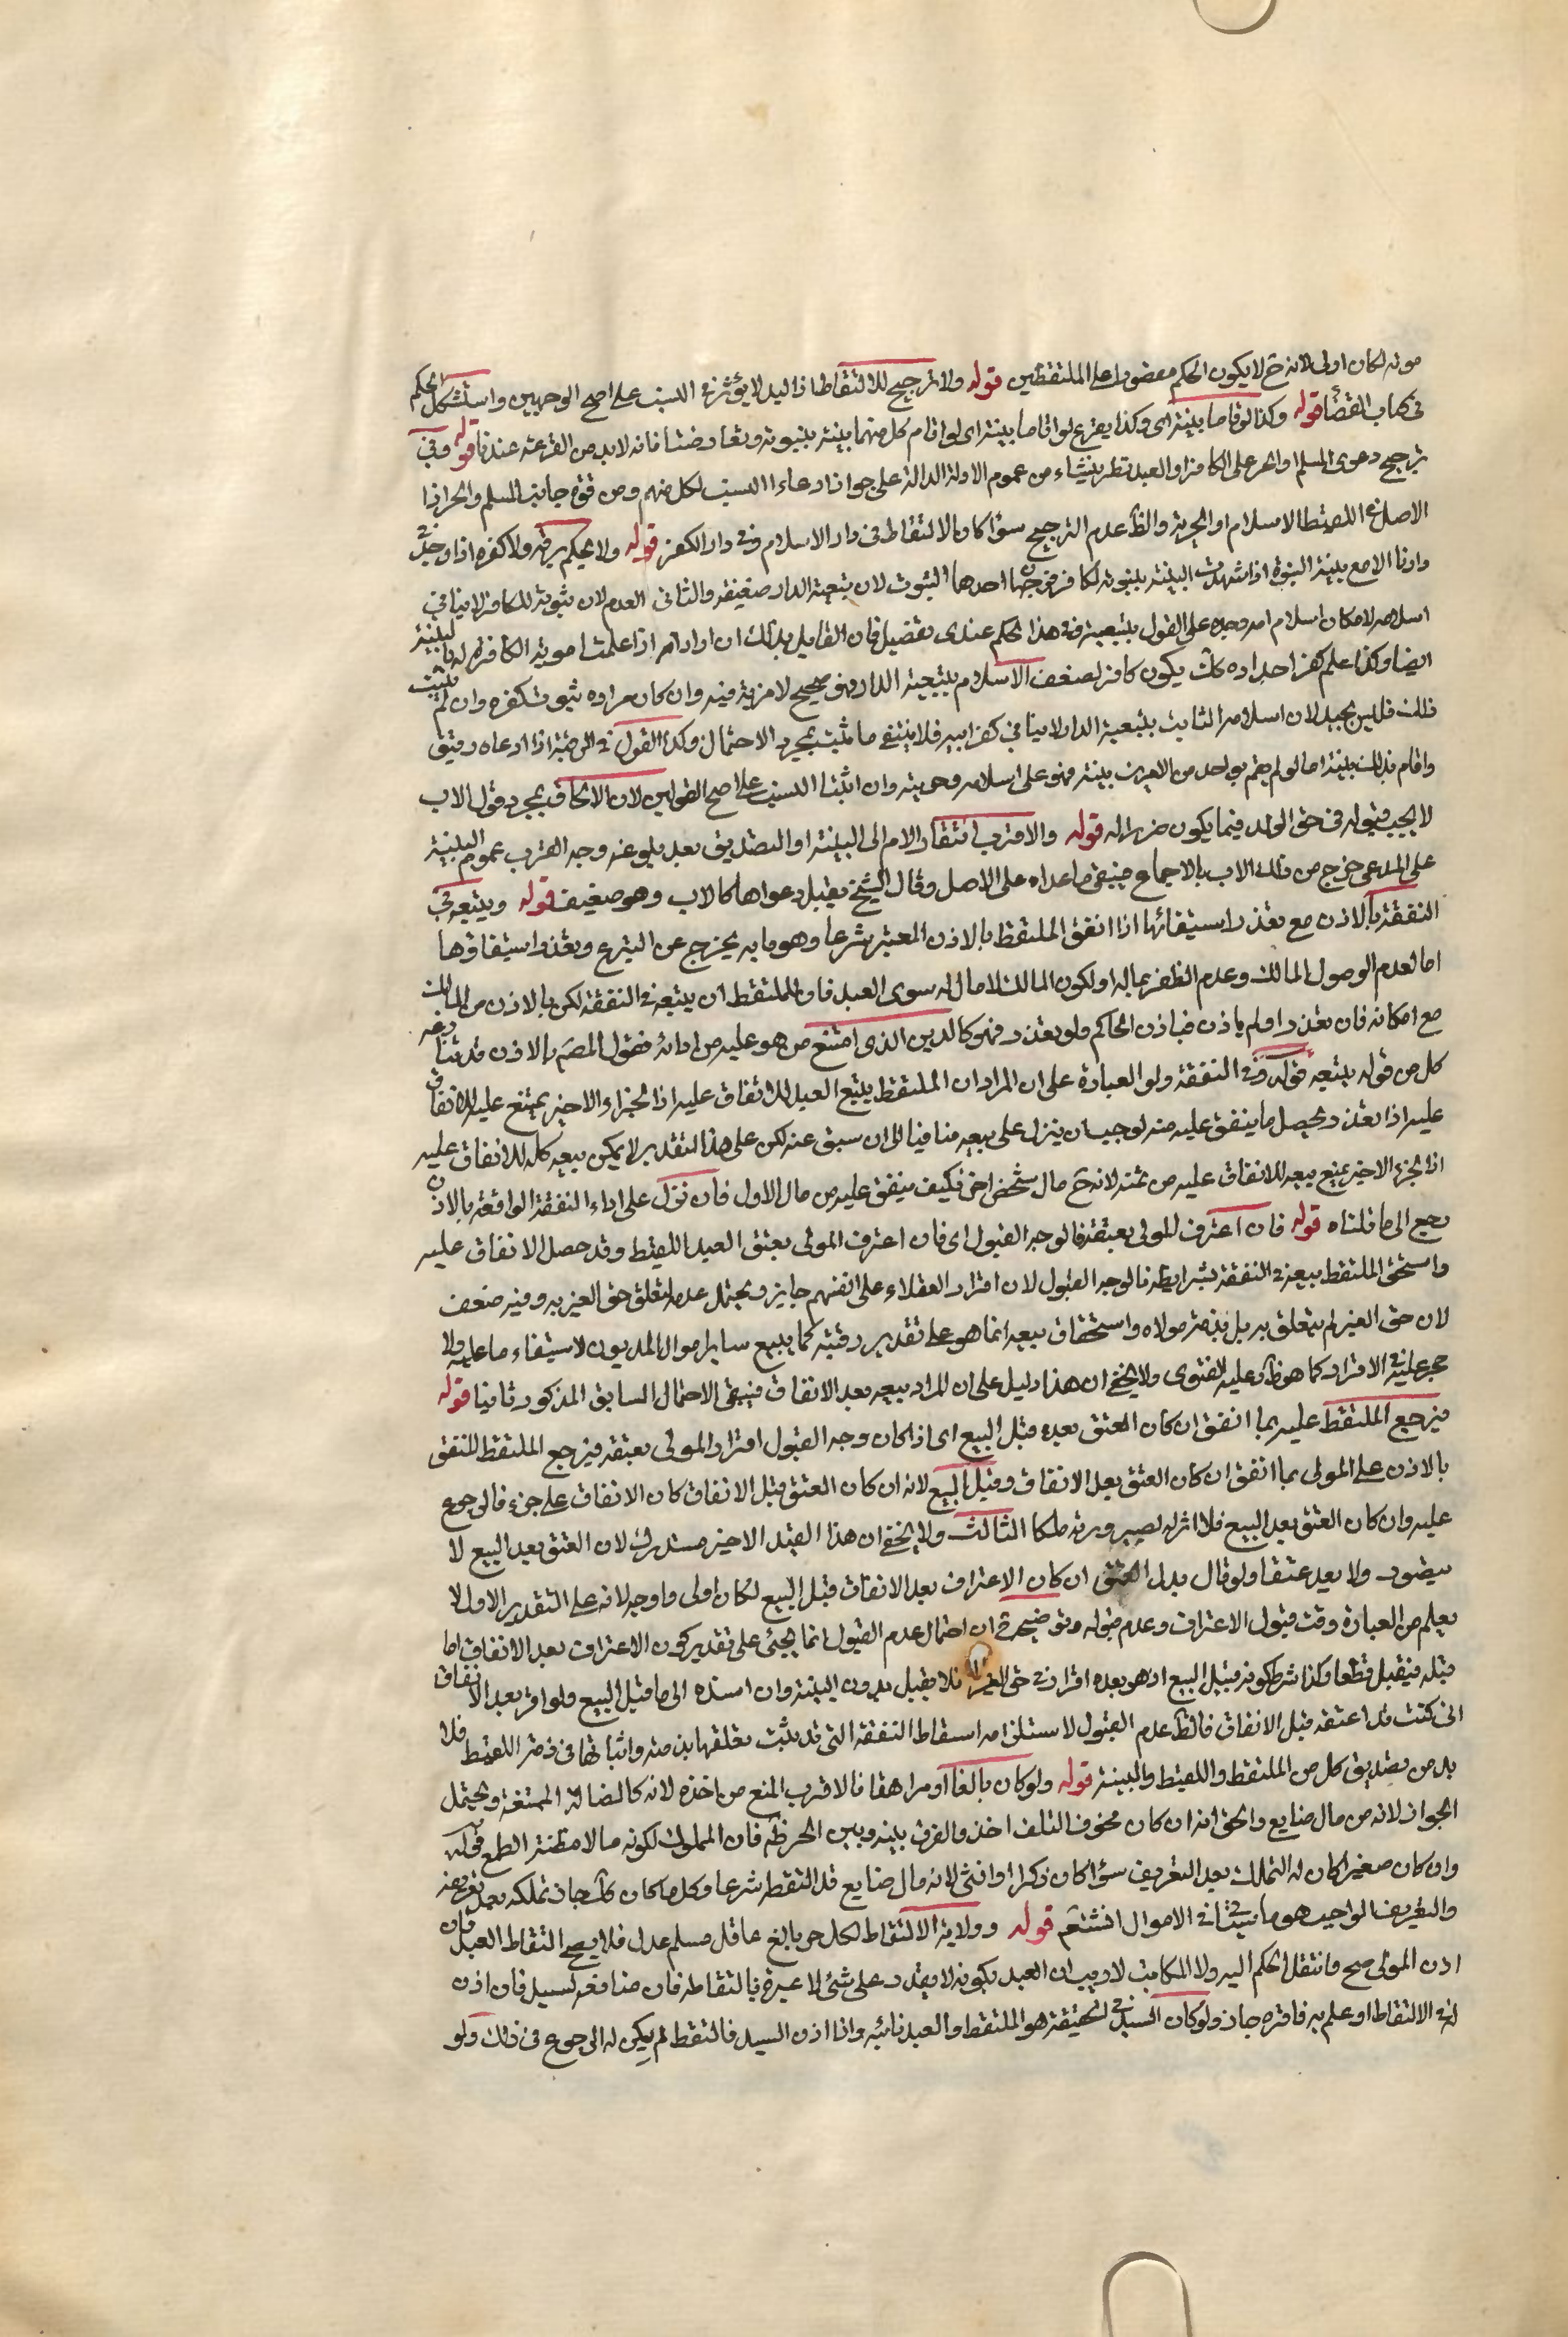 موته لكان اولى لانه ح لا يكون الحكم مقصورا على الملتقطين قوله ولا ترجيح للالتقاط اذ اليد لا يؤثر في النسب على اصح الوجهين واستشكل الحكم
في كتاب القضا قوله وكذا لو اقاما بينة اى وكذا يقرع لو اقاما بينة اى لو اقام كل منهما بينة ببنوته وتعارضتا فانه لابد من القرعة عندنا قوله وفي
ترجيح دعوى المسلم او الحر على الكافر او العبد نظر ينشاء من عموم الادلة الدالة على جواز ادعاء النسب لكل منهم ومن قوة جانب المسلم والحر اذ
الاصل في اللقيط الاسلام او الحرية والظ عدم الترجيح سؤا كان الالتقاط في دار الاسلام وفي دار الكفر قوله ولا يحكم برقه ولا كفره اذا وجد في
دارنا الا مع بينة البنوة اذا شهدت البينة ببنوته لكافر فوجهان احدها الثبوت لان تبعية الدار ضعيفة والثاني العدم لان ثبوته للكافر لا ينافي
اسلامه لامكان اسلام امه وجده على القول بتبعيته في هذا الحكم عندى تفصيل فان القايل بذلك ان اراد انه اذا علمت امومة الكافرة له بالبينة
ايضا وكذا علم كفر اجداده كلت يكون كافر لضعف الاسلام بتبعية الدار فهو صحيح لا مرية فيه وان كان مراده ثبوت كفره وان لم يثبت
ذلك فليس بجيد لان اسلامه الثابت بتبعية الدار لا ينافي كفر ابيه فلا ينتفي ما ثبت بمجرد الاحتمال وكذا القول في الرقية اذا ادعاه رقيق
واقام بذلك بينة اما لو لم يقم بواحد من الامرين بينة فهو على اسلامه وحريته وان اثبتنا النسب على اصح القولين لان الالحاق بمجرد قول الاب
لا يجب قبوله في حق الولد فيما يكون ضررا له قوله والاقرب افتقار الام الى البينة او التصديق بعد بلوغه وجه القرب عموم البينة
على المدعى خرج من ذلك الاب بالاجماع فيبقى ما عداه على الاصل وقال الشيخ يقبل دعواها كالاب وهو ضعيف قوله ويتبعه في
النفقة بالاذن مع تعذر استيفائها اذا انفق الملتقط بالاذن المعتبر شرعا وهو ما به يخرج عن التبرع وتعذر استيفاؤها
اما لعدم الوصول المالك وعدم الظفر بماله او لكون المالك لا مال له سوى العبد فان للملتقط ان يبيعه في النفقة لكن بالاذن من المالك
مع امكانه فان تعذر او لم ياذن فباذن الحاكم ولو تعذر فهو كالدين الذى امتنع من هو عليه من ادائه فقول المصم بالاذن قد تنازعه
كل من قوله يبيعه وقوله في النفقة ولو العبارة على ان المراد ان الملتقط يبيع العبد للانفاق عليه اذ الجزاء الاخير يمتنع عليه الانفاق
عليه اذا تعذر تحصيل ما ينفق عليه منه لوجب ان ينزل على بيعه منافيا لما سبق عنه لكن على هذا التقدير لا يمكن بيعه كله للانفاق عليه
اذ الجزء الاخير يمنع بيعه للانفاق عليه من ثمنه لانه ح مال شخص اخر فكيف ينفق عليه من مال الاول فان نزل على اداء النفقة الواقعة بالاذن
رجع الى ما قلناه قوله فان اعترف المولى بعتقه فالوجه القبول اى فان اعترف المولى بعتق العبد اللقيط وقد حصل الانفاق عليه
واستحق الملتقط بيعه في النفقة بشرايطه فالوجه القبول لان اقرار العقلاء على انفسهم جايز ويحتمل عدمه لتعلق حق الغير به وفيه ضعف
لان حق الغير لم يتعلق به بل بذمة مولاه واستحقاق بيعه انما هو على تقدير رقيته كما يبيع ساير اموال المديون لاستيفاء ما عليه ولا
حجر عليه في الاقرار كما هو ظ وعليه الفتوى ولا يخفى ان هذا دليل على ان المراد بيعه بعد الانفاق فينتفي الاحتمال السابق المذكور ثانيا قوله
فيرجع الملتقط عليه بما انفق ان كان العتق بعده قبل البيع اى اذا كان وجه القبول اقرار المولى بعتقه فيرجع الملتقط المنفق
بالاذن على المولى بما انفق ان كان العتق بعد الانفاق وقبل البيع لانه ان كان العتق قبل الانفاق كان الانفاق على جزء فالرجوع
عليه وان كان العتق بعد البيع فلا اثر له لصيرورته ملكا الثالث ولا يخفى ان هذا القيد الاخير مستدرك لان العتق بعد البيع لا
يتصور ولا يعد عتقا ولو قال بدل العتق ان كان الاعتراف بعد الانفاق قبل البيع لكان اولى واوجه لانه على التقدير الاول لا
يعلم من العبارة وقت قبول الاعتراف وعدم قبوله وتوضيحه ان احتمال عدم القبول انما يجئ على تقدير كون الاعتراف بعد الانفاق اما
قبله فيقبل قطعا وكذا شرط كونه قبل البيع اذ هو بعده اقرار في حق الغير فلا يقبل بدون البينة وان اسنده الى ما قبل البيع ولو اقر بعد الانفاق
انى كنت قد اعتقته قبل الانفاق فالظ عدم القبول لاستلزامه اسقاط النفقة التي قد يثبت تعلقها بذمته واثباتها في ذمة اللقيط فلا
بد من تصديق كل من الملتقط واللقيط والبينة قوله ولو كان بالغا او مراهقا فالاقرب المنع من اخذه لانه كالضالة الممتنعة ويحتمل
الجواز لانه من مال ضايع والحق انه ان كان مخوف التلف اخذ والفرق بينه وبين الحر ظ فان المملوك لكونه مالا مظنة الطمع قوله
وان كان صغيرا كان له التملك بعد التعريف سؤا كان ذكرا او انثى لانه مال ضايع قد التقطه شرعا وكل ما كان كلت جاز تملكه بعد تعريفه
والتعريف الواجب هو ما سيأتي في الاموال انشتعم قوله وولاية الالتقاط لكل حر بالغ عاقل مسلم عدل فلا يصح التقاط العبد فان
اذن المولى صح وانتقل الحكم اليه ولا المكاتب لا ريب ان العبد بكونه لا يقدر على شئ لا عبرة بالتقاطه فان منافعه لسيده فان اذن
له في الالتقاط او علم به فاقره جاز ولو كان السيد في الحقيقة هو الملتقط او العبد نائبه واذا اذن السيد فالتقط لم يكن له الرجوع في ذلك ولو